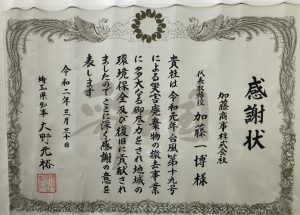 感謝状
加藤商事株式会社
代表取締役 加藤一博様
貴社は令和元年台風第十九号
による災害廃棄物の撤去事業
に多大なる御尽力をされ地域の
環境保全及び復旧に貢献され
ましたのでここに深く感謝の意を
表します
令和二年三月三十日
埼玉県知事 大野元裕